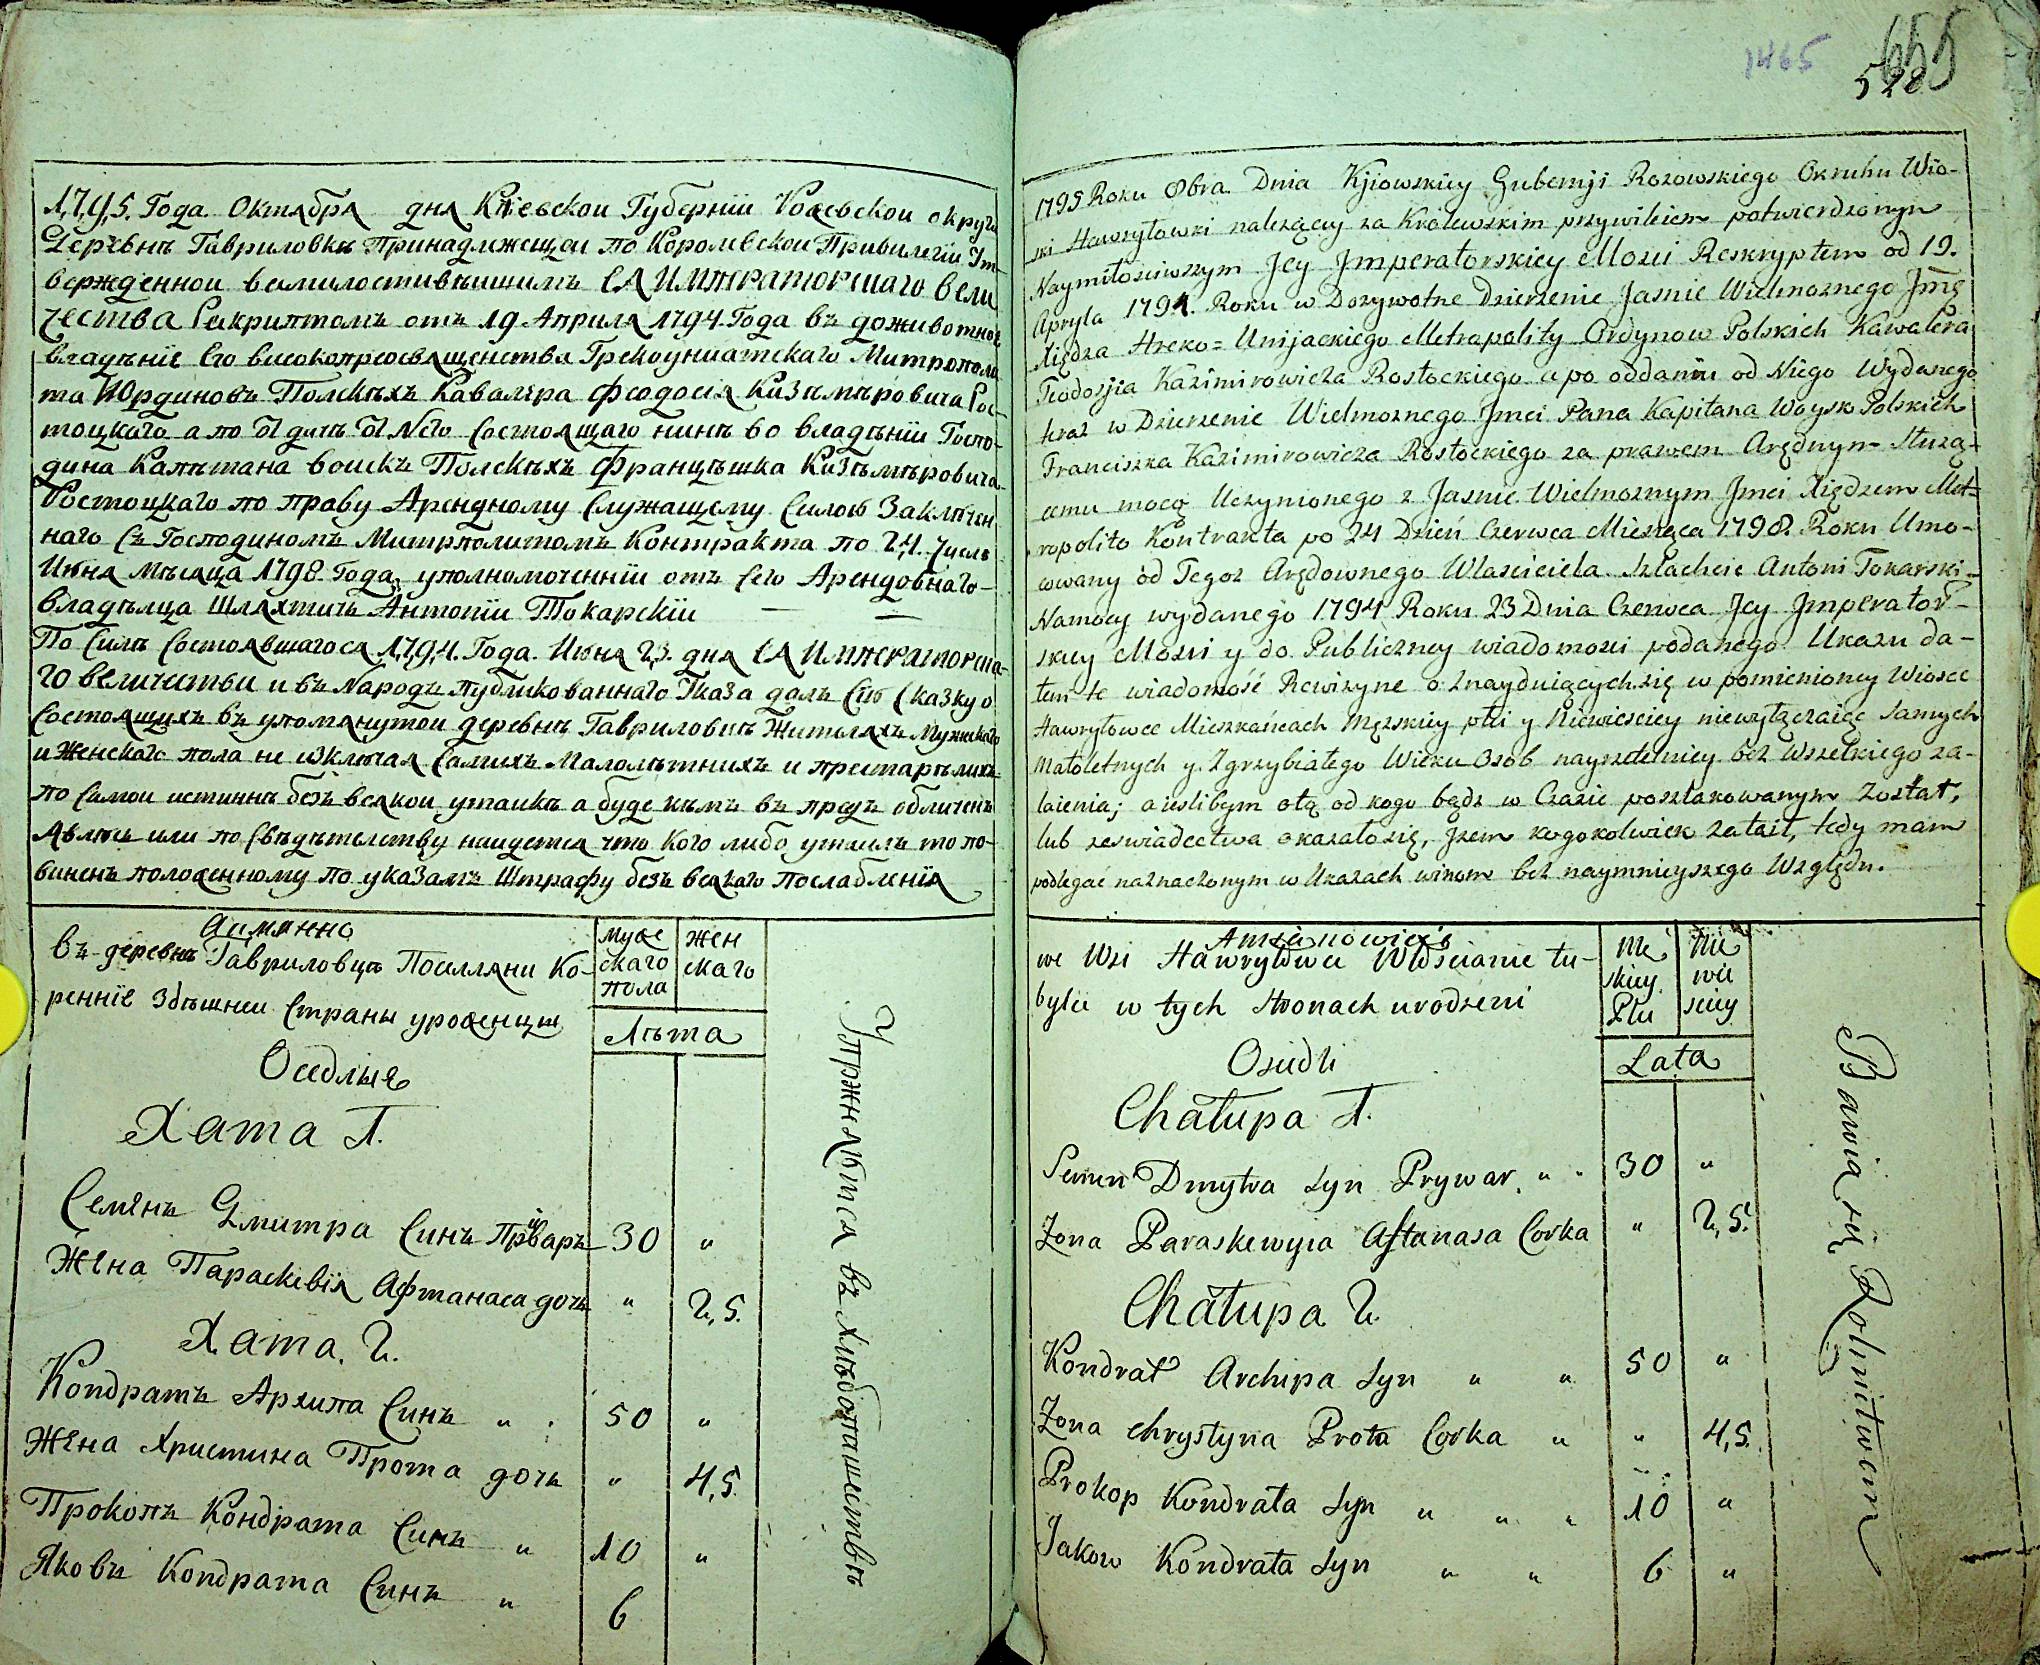 1,7,9,5. Года. Октабра дня Кіевской Губерніи Росевской округи
Деревнѣ Гавриловки принадлежещои по Королевской Привилегіи Ут-
вержденнои велмилостивѣишимъ ЕЯ ИМПЕРАТОРСКАГО Вели
чества Рескриптомъ отъ 19. Априля 1794. Года въ доживотное
владѣніе Его високопреосвященства Грекоуниатскаго Митропол
та Юрдиновъ Полскѣхъ Кавалера Феодосія Казѣмѣровича Рос-
тоцкаго а по отдачѣ от Него Состоящаго нинѣ во владѣніи Госпо-
дина Капѣтана воискъ Полскѣхъ Францѣшка Казѣмѣровича
Ростоцкаго по праву Арендному Служащему Силою Заключен
наго Съ Господиномъ Митрполитомъ Контракта по 2,4. числъ
Июня мѣсаца 1798. Года, уполномоченніи отъ Сего Арендовнаго
владѣлца Шляхтичъ Антоніи Токарскіи
По Силѣ Состоявшагося 1,7,9,4. Года. Июня 2,3. дня ЕЯ ИМПЕРАТОРСКА-
ГО величества и въ Народъ публикованнаго Указа далъ Сію Сказку о
Состоящихъ въ упомянутои деревнѣ Гавриловцѣ Жителяхъ Мужскаго
и Женскаго пола не изключая Самихъ Малолѣтнихъ и престарѣлихъ
по Самои истиннѣ безъ всякои утаикѣ а буде кѣмъ въ предъ обличенъ
Авлюсь или по Свѣдѣтелству наидется что кого либо утаилъ то по-
виненъ положенному по указамъ Штрафу безъ всякаго послабленія
Аимянно
въ деревнѣ Гавриловцѣ Поселлани Ко-
ренніе Збѣшнеи Страны уроженци
муже
скаго
пола
Жен
скаго
Лѣта
Оседлыя
Хата 1.
Семѣнъ Дмитра Синъ Приваръ 30 "
Жена Параскевія Афтанаса дочь " 2,5.
Хата. 2.
Кондратъ Архипа Синъ " " 50 "
Жена Христина Прота дочь " 4,5.
Прокопъ Кондрата Синъ " 10 "
Яковъ Кондрата Синъ " 6
Упражняются въ хлѣбопашествѣ
1465
655
528
1795 Roku 8bra Dnia Kjiowskiey Gubernji Rosowskiego Okruhu Wio-
ski Hawryłowki należącey za Królewskim przywilejem potwierdzonym
Naymiłościwszym Jey Jmperatorskiey Mości Reskryptem od 19.
Apryla 1794. Roku w Dożywotne Dzierżenie Jaśnie Wielmożnego Jmę
Xiędza Hreko=Unijackiego Metropolity Ordynow Polskich Kawalera
Teodozjia Kazimirowicza Rostockiego a po oddaniu od Niego Wydanego
teraz w Dzierżenie Wielmożnego Jmci Pana Kapitana Woysk Polskich
Franciszka Kazimirowicza Rostockiego za prawem Arędnym Służą-
cemu mocą Uczynionego z Jaśnie Wielmożnym Jmci Xiędzem Met=
ropolito Kontrakta po 24 Dzień Czerwca Miesiąca 1798. Roku Umo-
cowany od Tegoż Arędownego Właściciela Szlachcic Antoni Tokarski
Namocy wydanego 1794 Roku 23 Dnia Czerwca Jey Jmperator-
skiey Mości y do Publiczney wiadomości podanego Ukazu da-
łem te wiadomość Rewizyne o znayduiących się w pomienioney Wiosce
Hawryłowce Mieszkańcach Męzskiey płci y Niewieściey niewyłączaiąc samych
Małoletnych y Zgrzybiałego Wieku Osob nayrzetelniey bez wszelkiego za-
taienia; a ieslibym otą od kogo bądz w Czasie poszlakowanym Został,
lub zeswiadectwa okazałosię, żem kogokolwiek zataił, tedy mam
podlegać naznaczonym w Ukazach winom bez naymnieyszego Względu.
Amianowicie
we Wsi Hawryłowce Włościanie tu-
bylci w tych stronach urodzeni
Mę
skiey
Płci
Nie
wie
sciey
Lata
Osiedli
Chałupa 1.
Semen Dmytra Syn Prywar. " " 30 "
Zona Paraskewyia Aftanasa Corka " 2,5.
Chałupa 2.
Kondrat Archipa Syn " " 50 "
Zona Chrystyna Prota Corka " " 4,5.
Prokop Kondrata Syn " " " 10 "
Jakow Kondrata Syn " " 6 "
Bawią się Rolnictwem